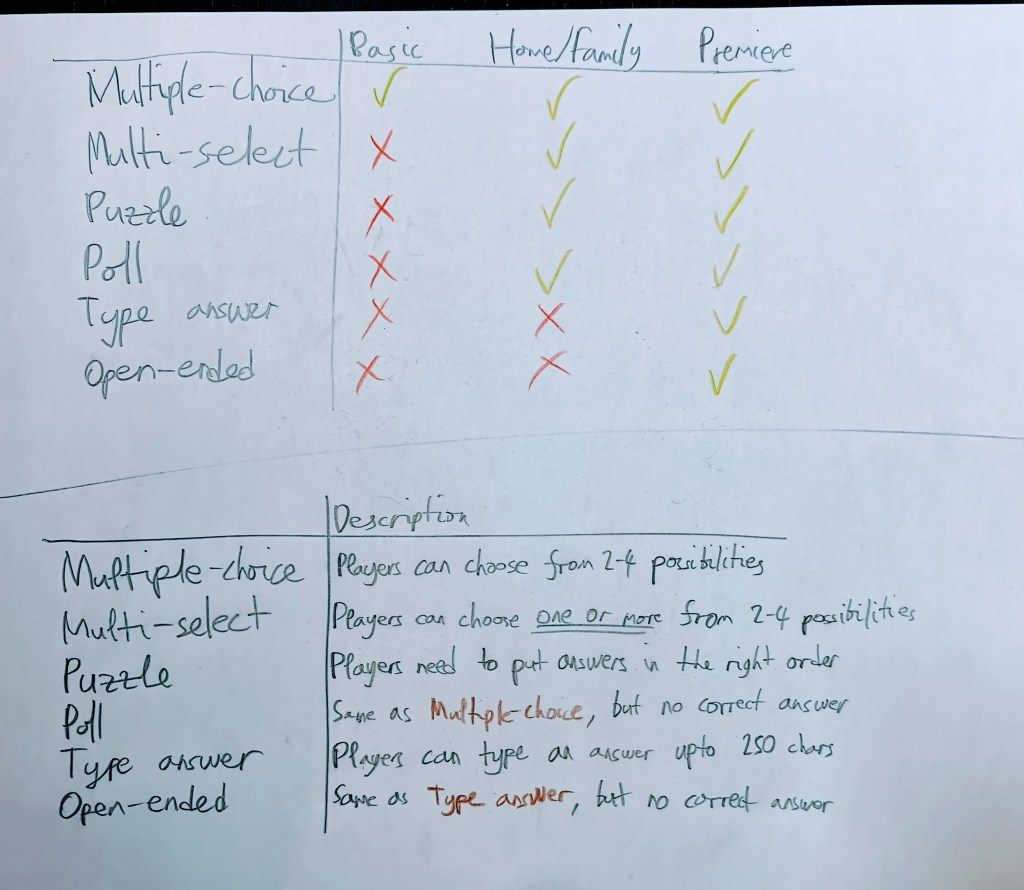 Basic Home/Family Premiere
Multiple-choice ✓ ✓ ✓
Multi-select ✗ ✓ ✓
Puzzle ✗ ✓ ✓
Poll ✗ ✓ ✓
Type answer ✗ ✗ ✓
Open-ended ✗ ✗ ✓
Description
Multiple-choice Players can choose from 2-4 possibilities
Multi-select Players can choose one or more from 2-4 possibilities
Puzzle Players need to put answers in the right order
Poll Same as Multiple-choice, but no correct answer
Type answer Players can type an answer upto 250 chars
Open-ended Same as Type answer, but no correct answer